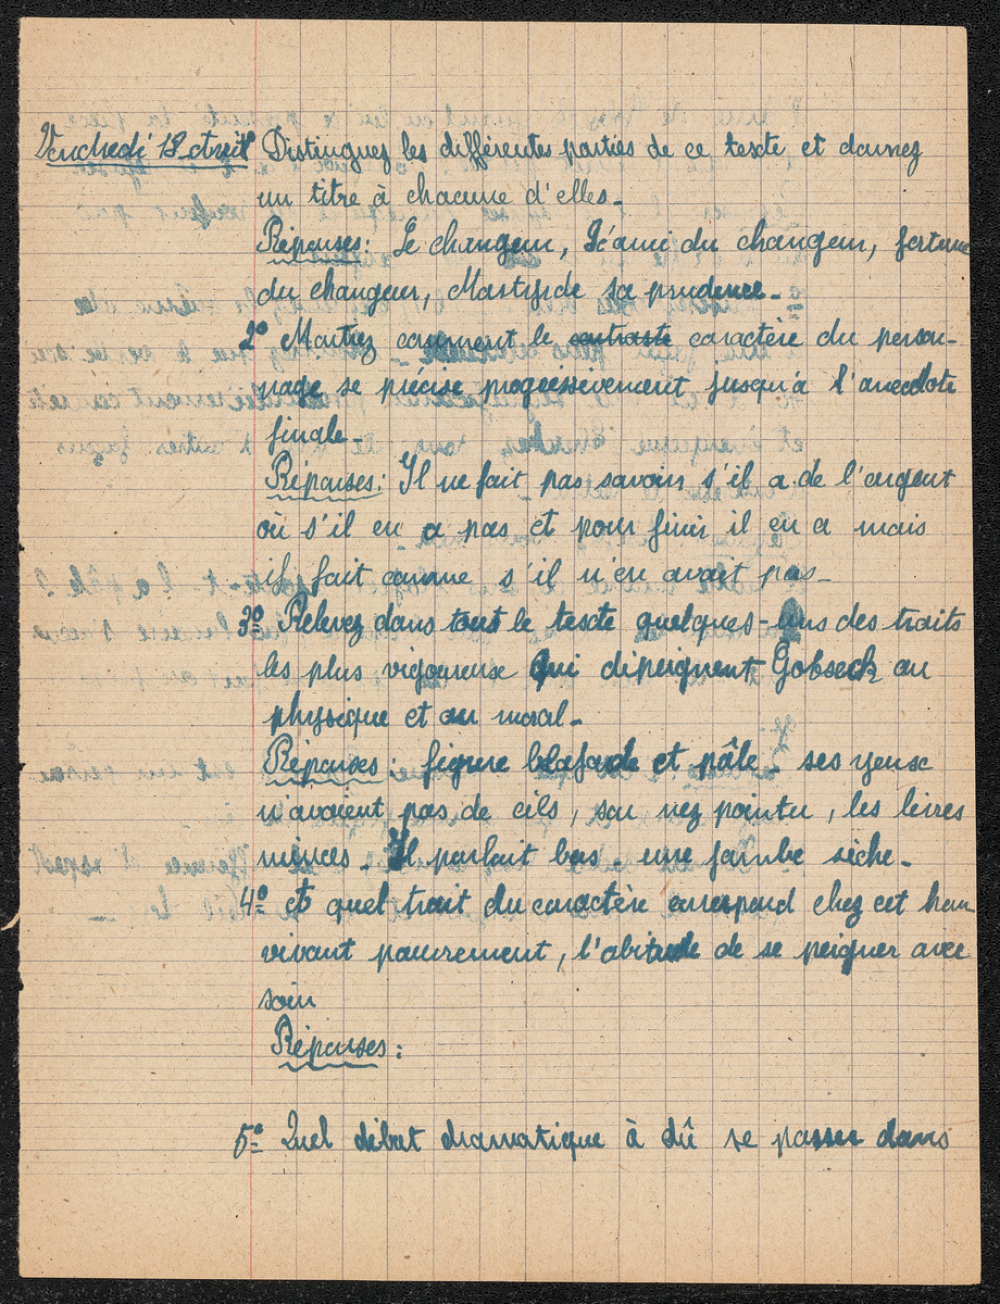 Vendredi 18 Avril Distinguez les différentes parties de ce texte et donnez
un titre à chacune d'elles_
Réponses: Le changeur, L'ami du changeur, fortune
du changeur, de sa prudence_
2º Montrez comment le contraste caractère du person-
nage se précise progressivement jusqu'à l'anecdote
finale_
Réponses: Il ne fait pas savoir s'il a de l'argent
où s'il en a pas et pour finir il en a mais
il fait comme s'il n'en avait pas_
3º Relevez dans tout le texte quelques-uns des traits
les plus vigoureux qui dépeignent Gobseck au
physique et au moral_
Réponses: figure blafarde et pâle_ ses yeux
n'avaient pas de cils, son nez pointu, les lèvres
minces_ Il parlait bas_ une jambe sèche_
4º et quel trait du caractère correspond chez cet hom
vivant pauvrement, l'abitude de se peigner avec
soin
Réponses:
5º Quel débat dramatique à dû se passer dans